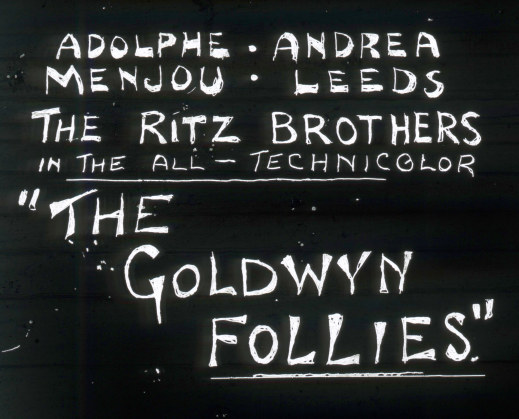 ADOLPHE · ANDREA
MENJOU · LEEDS
THE RITZ BROTHERS
IN THE ALL-TECHNICOLOR
"THE
GOLDWYN
FOLLIES."